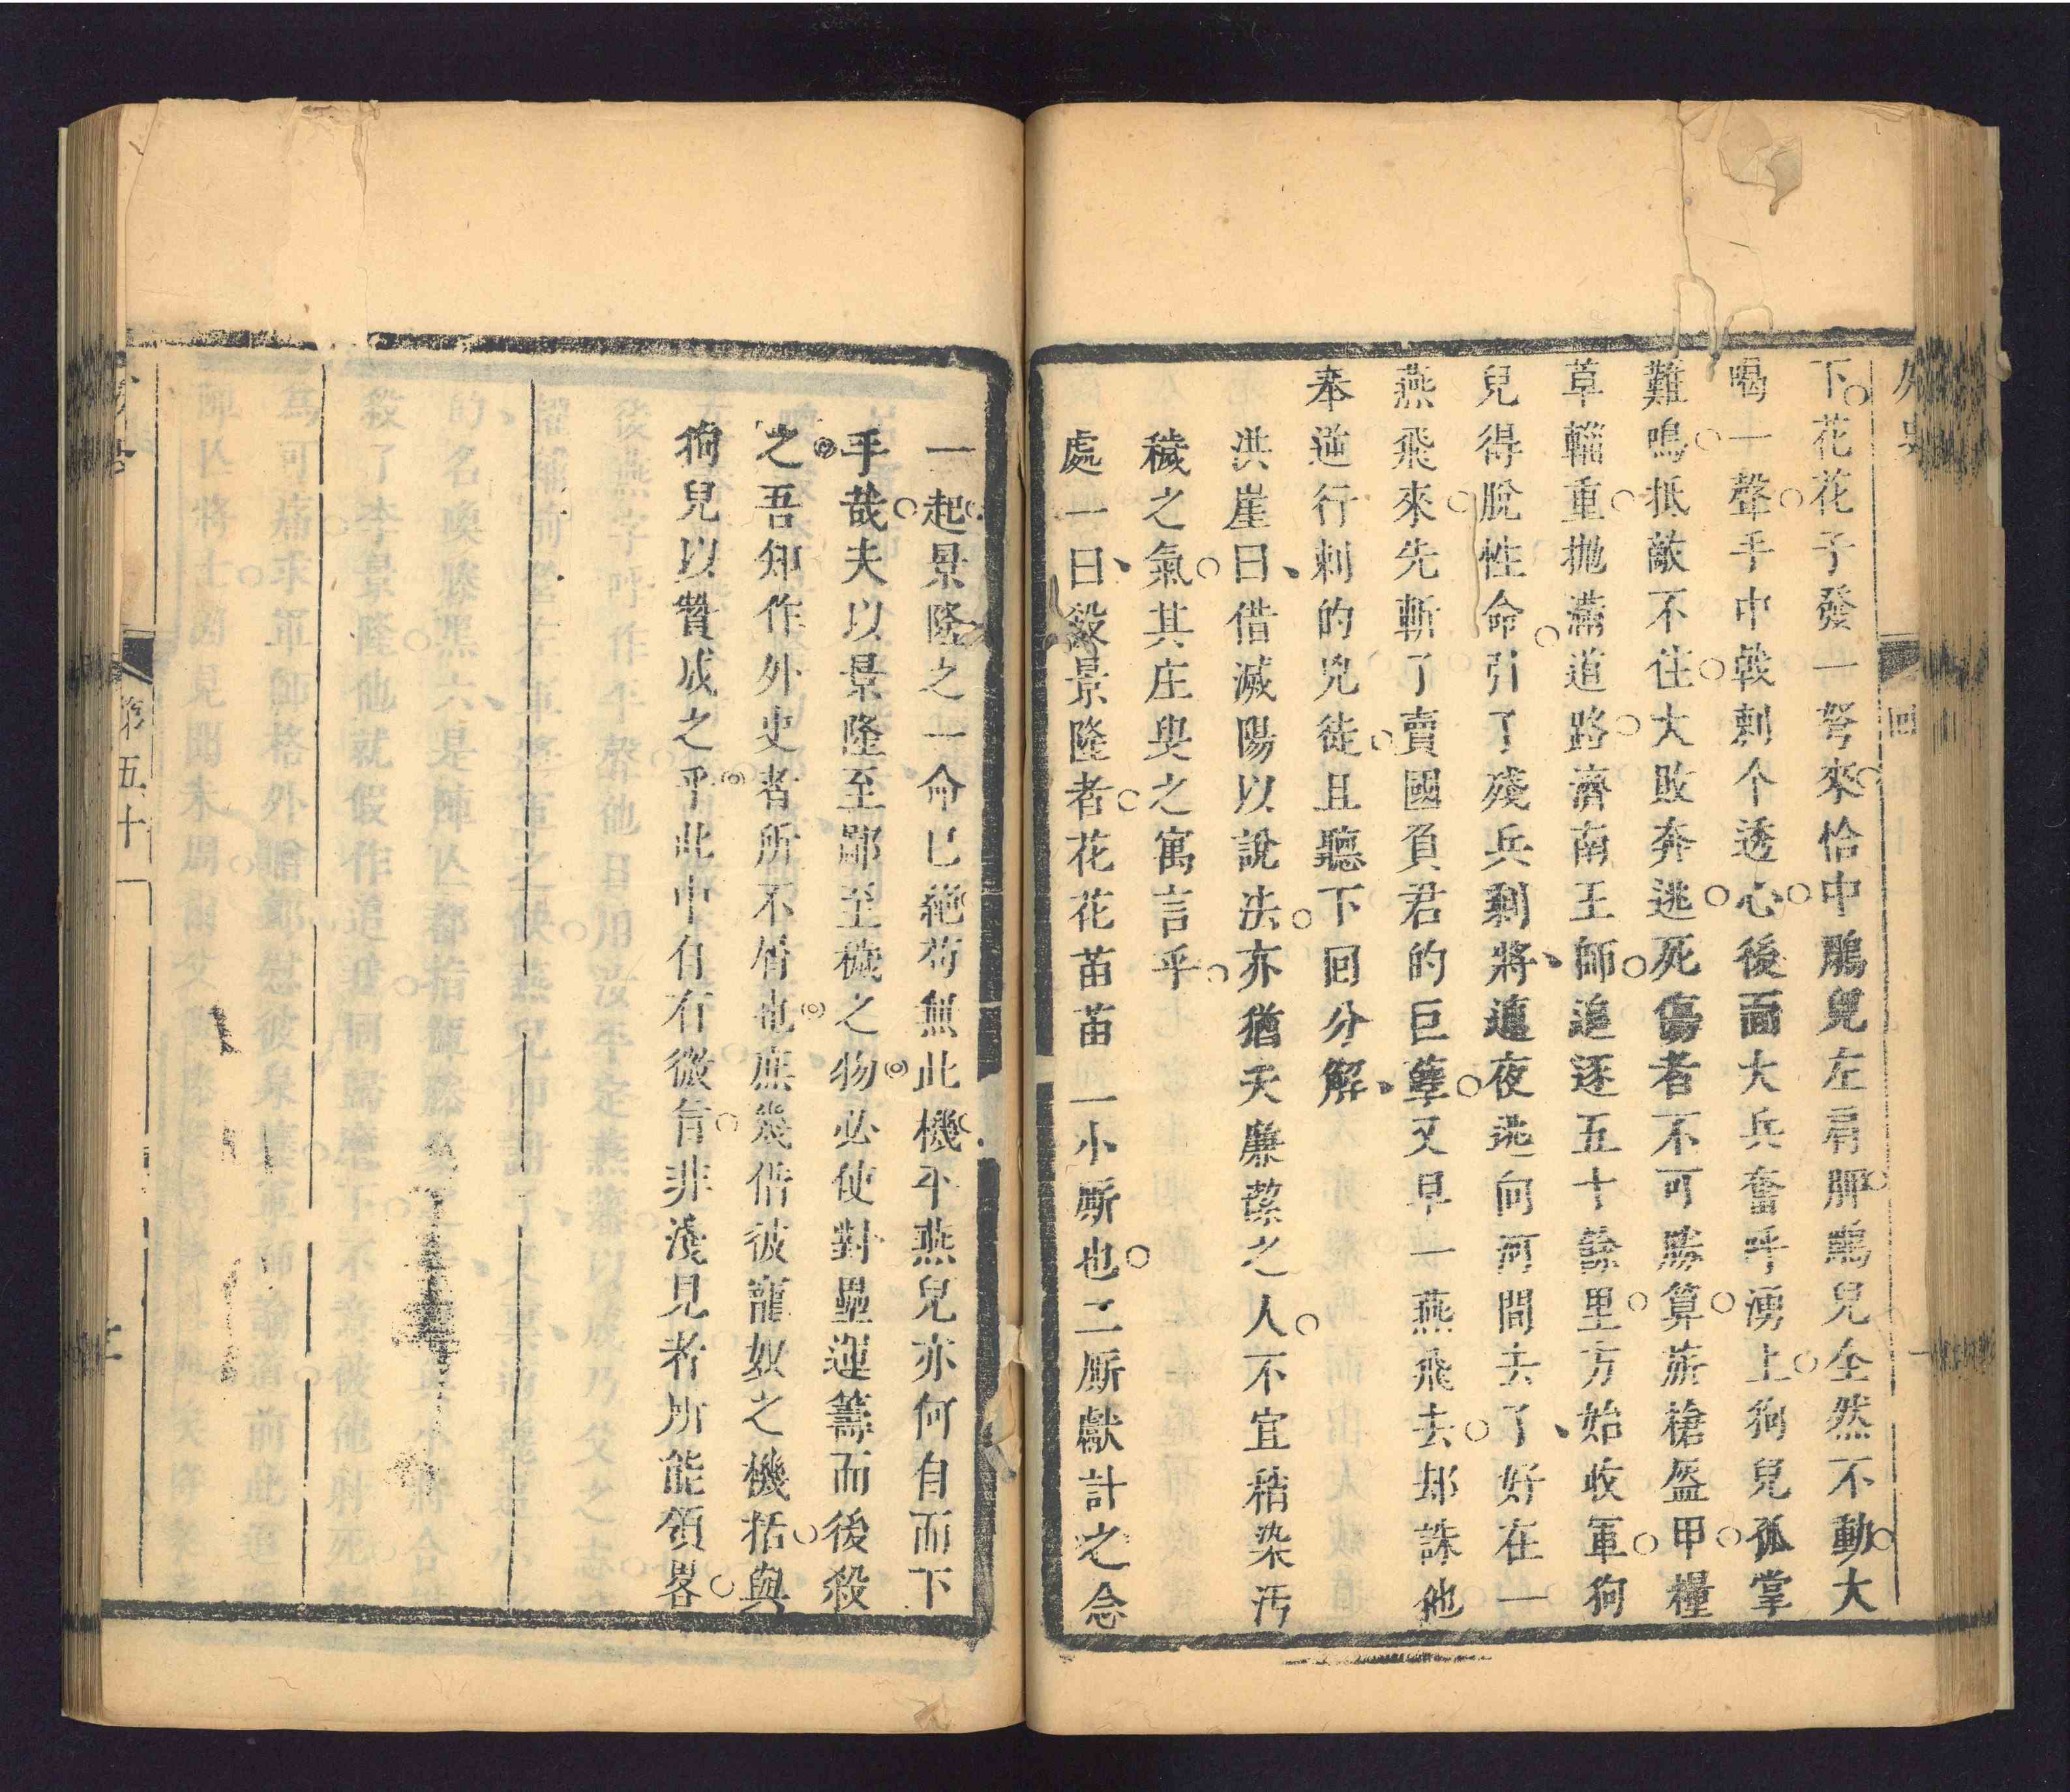 下花花子發一弩來恰中鵰兒左肩胛鵰兒全然不動大
喝一聲手中戟刺个透心後面大兵奮呼湧上狗兒孤掌
難鳴抵敵不住大敗奔逃死傷者不可勝算旂槍盔甲糧
草輜重拋滿道路濟南王師追逐五十餘里方始收軍狗
兒得脫性命引了殘兵剩將連夜逃向河間去了好在一
燕飛來先斬了賣國負君的巨孽又早一燕飛去却誅他
奉逆行刺的兇徒且聽下回分解
洪崖曰借滅陽以說法亦猶夫廉潔之人不宜稍染汚
穢之氣其庄叟之寓言乎
處一曰殺景隆者花花苗苗一小厮也二厮獻計之念
一起景隆之一命已絕苟無此機平燕兒亦何自而下
手哉夫以景隆至鄙至穢之物必使對壘運籌而後殺
之吾知作外史者所不屑也庶幾借彼寵奴之機括與
狗兒以贊成之乎此中自有微旨非淺見者所能領畧
第五十